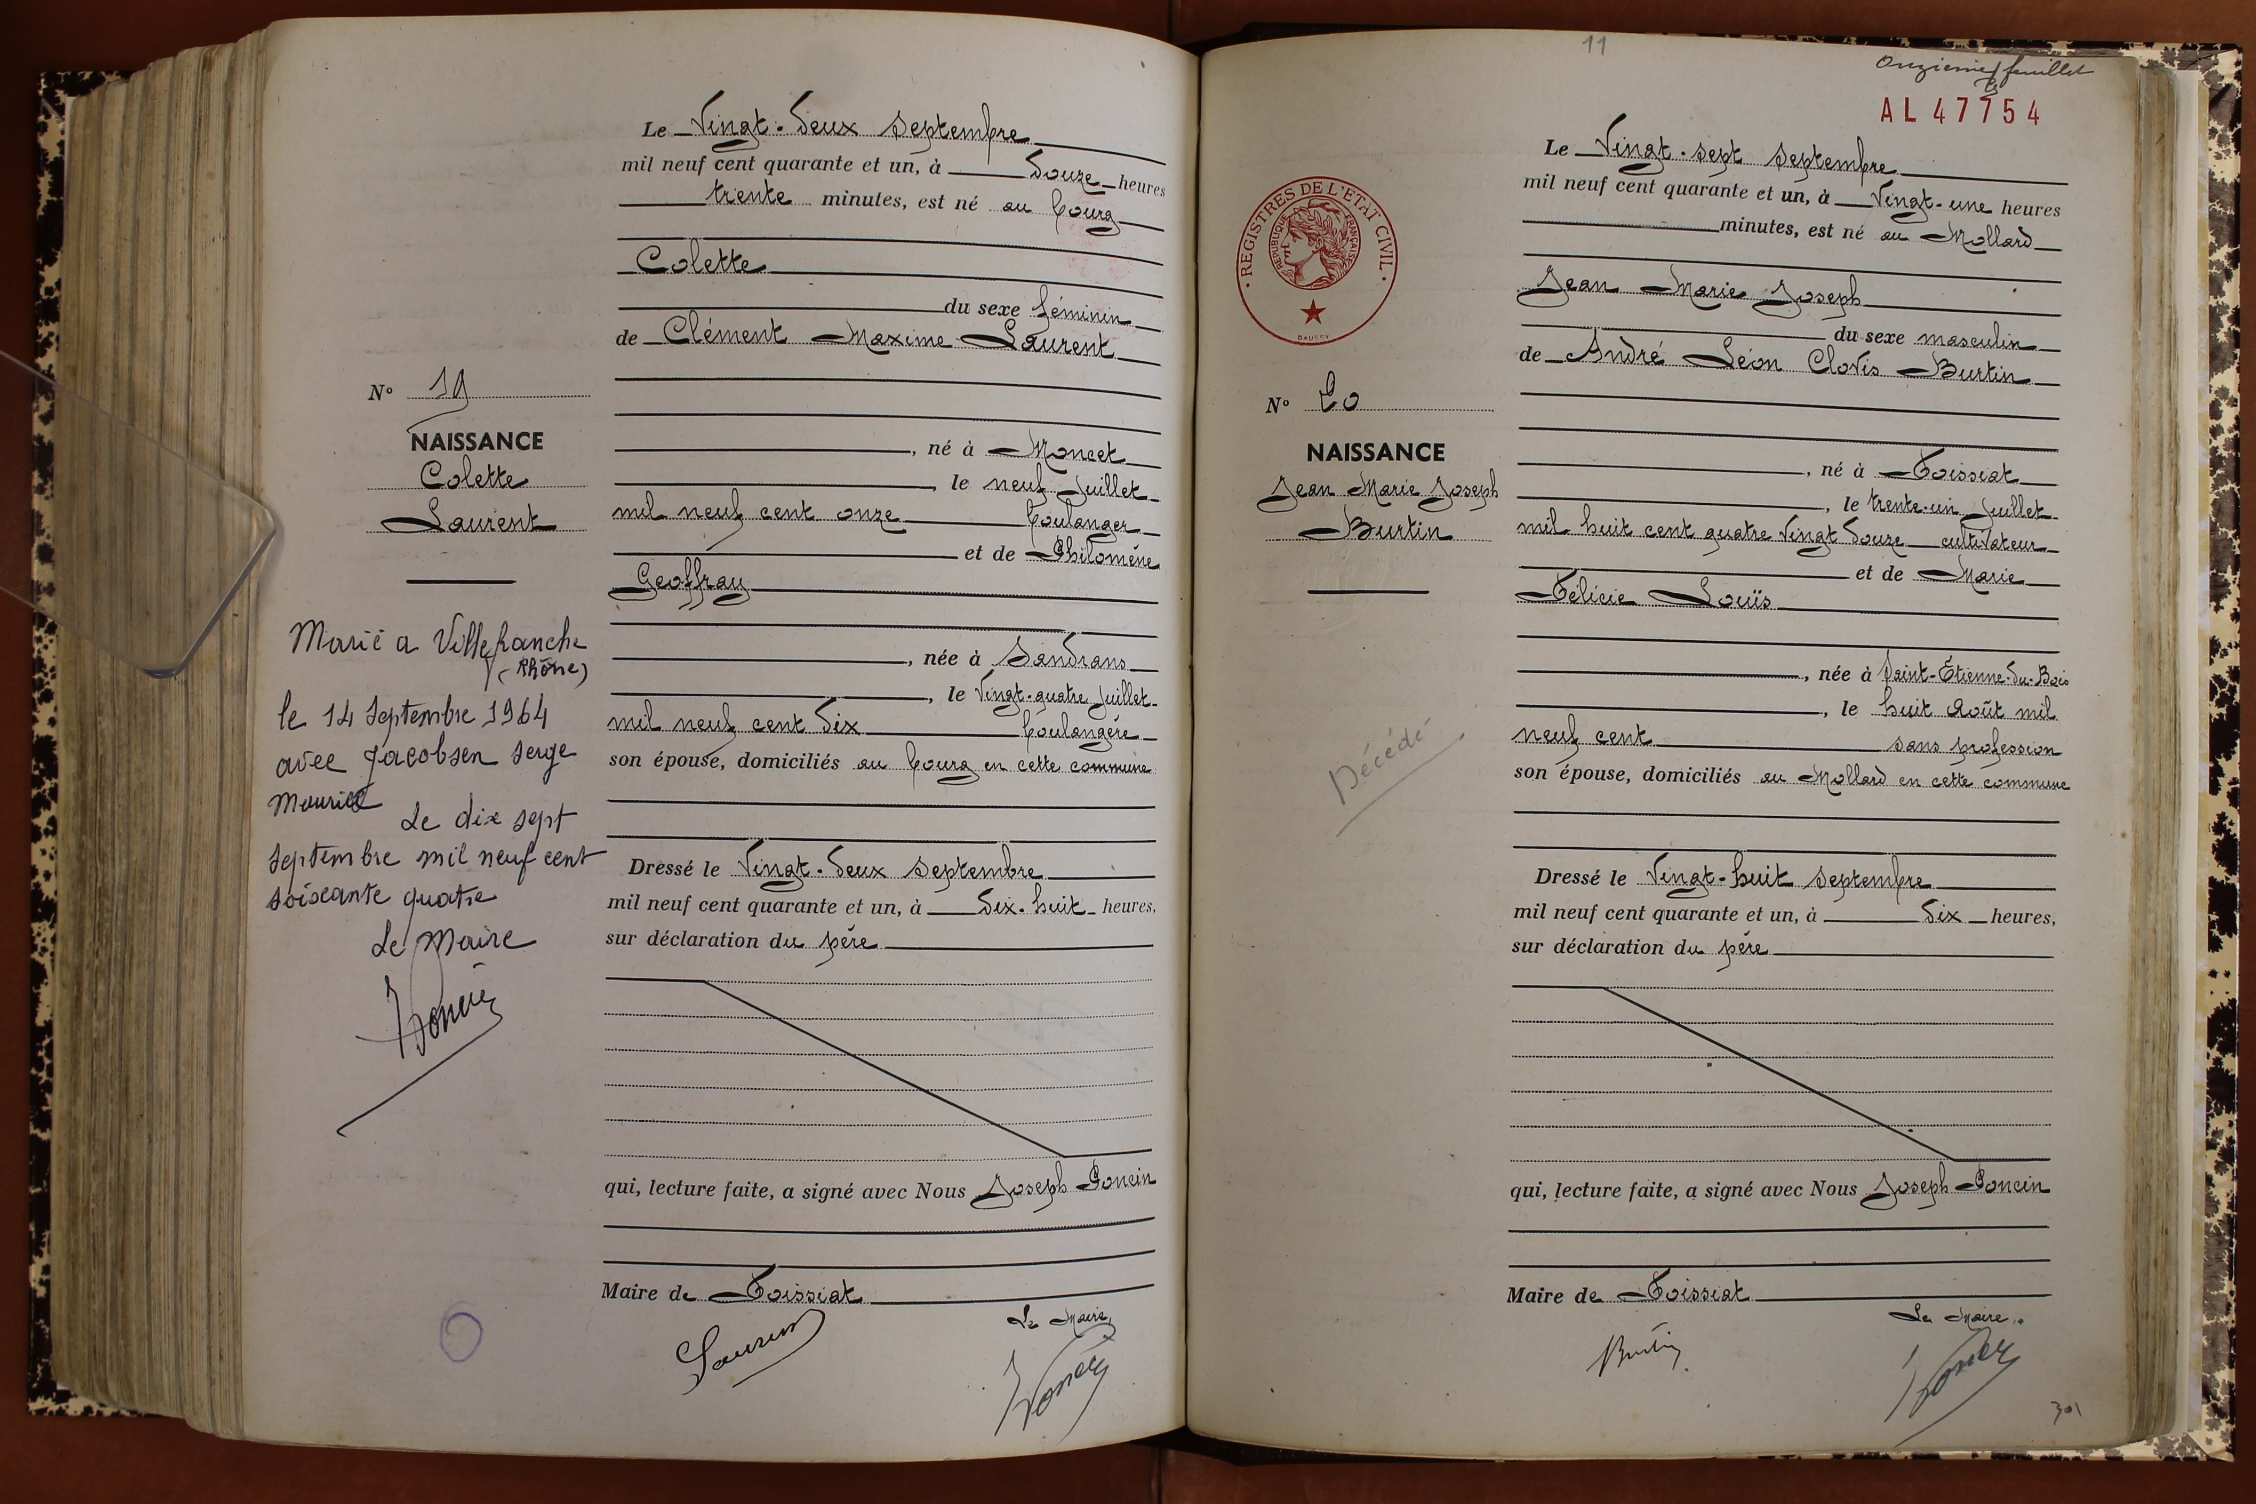 Le Vingt-deux septembre
mil neuf cent quarante et un, à douze heures
trente minutes, est né au bourg
Colette
du sexe féminin
de Clément Maxime Laurent
né à Moncet
, le neuf juillet
mil neuf cent onze boulanger
et de Philomène
Geoffray
, née à Sandrans
, le vingt-quatre juillet
mil neuf cent dix boulangère
son épouse, domiciliés au bourg en cette commune
Dressé le Vingt-deux septembre
mil neuf cent quarante et un, à dix-huit heures,
sur déclaration du père
qui, lecture faite, a signé avec Nous Joseph Poncin
Maire de Foissiat
Le Maire,
Laurent
Poncin
N° 19
NAISSANCE
Colette
Laurent
Marié a Villefranche
(Rhône)
le 14 septembre 1964
avec Jacobsen Serge
Maurice
Le dix sept
septembre mil neuf cent
soixante quatre
Le Maire
Poncin
11
Onzième feuillet
AL 47754
REGISTRES DE L'ETAT CIVIL
REPUBLIQUE FRANÇAISE
Le Vingt-sept septembre
mil neuf cent quarante et un, à Vingt-une heures
minutes, est né au Mollard
Jean Marie Joseph
du sexe masculin
de André Léon Clovis Burtin
, né à Foissiat
, le trente-un juillet
mil huit cent quatre vingt douze cultivateur
et de Marie
Félicie Louïs
, née à Saint-Étienne-du-Bois
, le huit août mil
neuf cent sans profession
son épouse, domiciliés au Mollard en cette commune
Dressé le Vingt-huit septembre
mil neuf cent quarante et un, à dix heures,
sur déclaration du père
qui, lecture faite, a signé avec Nous Joseph Poncin
Maire de Foissiat
Le Maire,
Burtin
Poncin
N° 20
NAISSANCE
Jean Marie Joseph
Burtin
Décédé
301